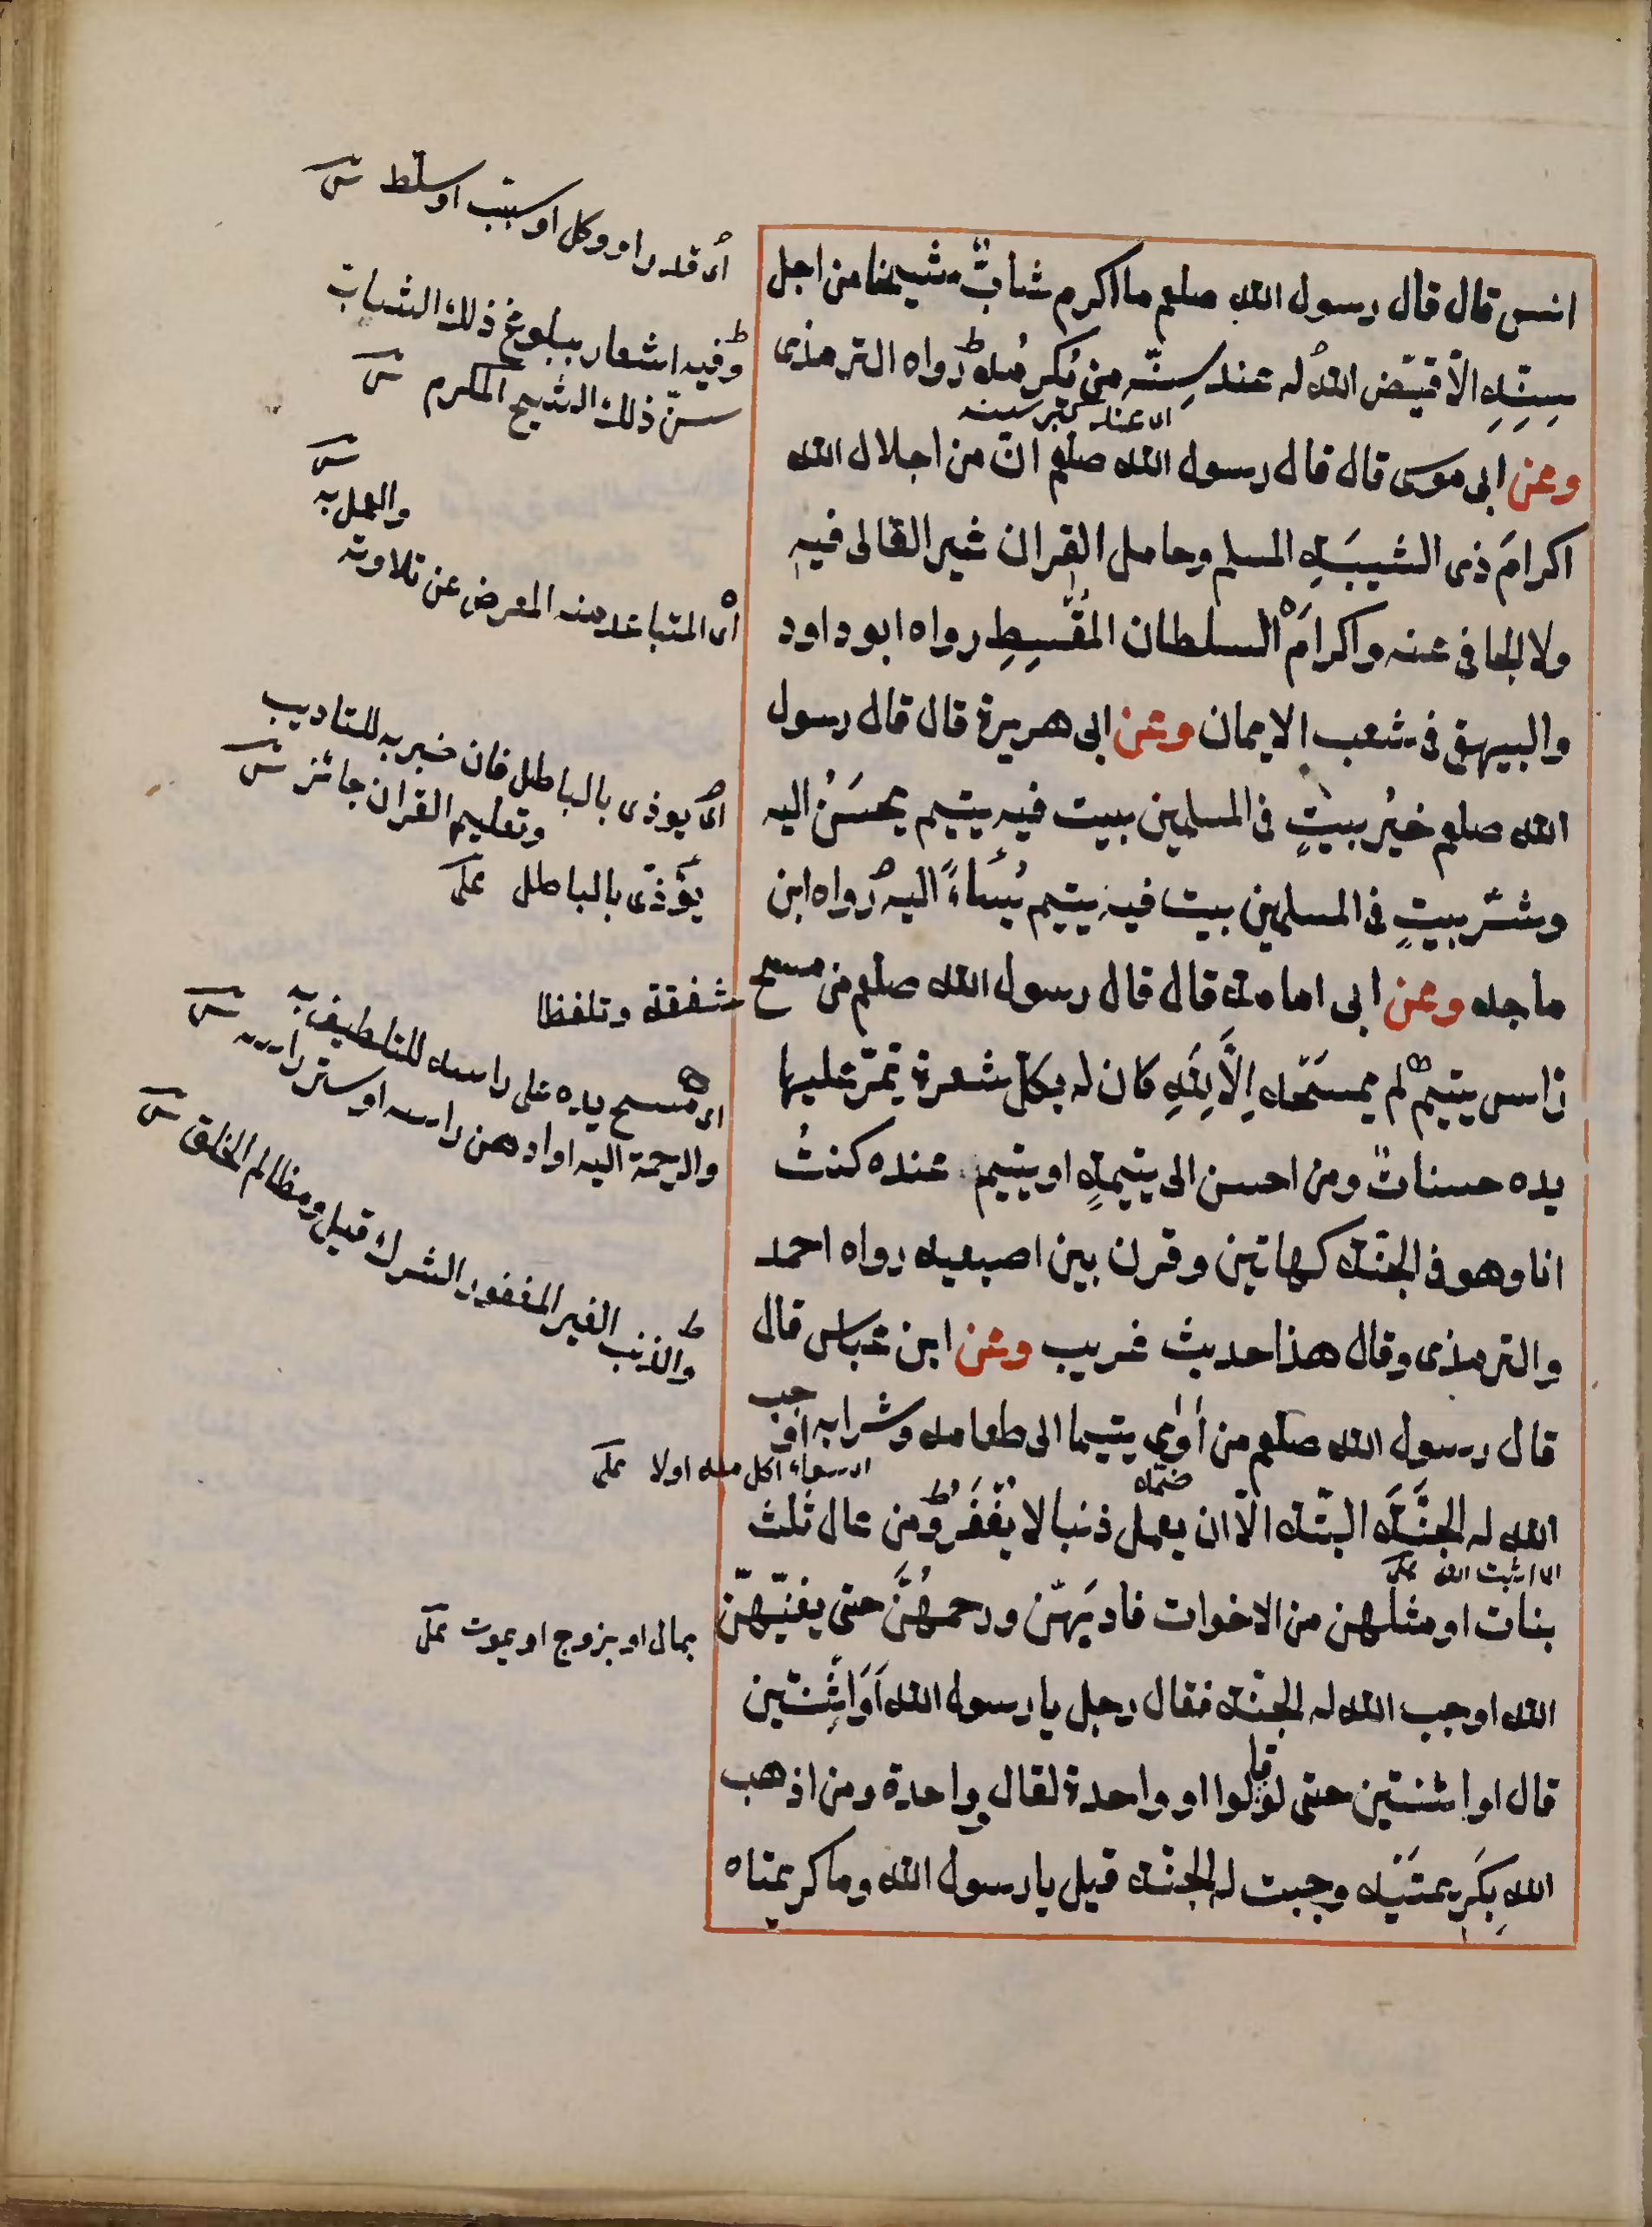 انس قال قال رسول الله صلعم ما اكرم شابٌّ شيخا من اجل
سِنِّهِ الّا قيّض اللهُ له عند سِنّه من يُكرمُه رواه الترمذى
اى عند كبر سنه
وعن ابى موسى قال قال رسول الله صلعم انّ من اجلال الله
اكرامَ ذى الشيبَةِ المسلم وحامل القران غير الغالى فيه
ولا الجافى عنه واكرامَ السلطان المُقْسِطِ رواه ابو داود
والبيهقى فى شعب الايمان وعن ابى هريرة قال قال رسول
الله صلعم خيرُ بيتٍ فى المسلمين بيت فيه يتيم يحسَنُ اليه
وشرّ بيتٍ فى المسلمين بيت فيه يتيم يُسَاءُ اليه رواه ابن
ماجه وعن ابى امامة قال قال رسول الله صلعم من مسح
راس يتيم لم يمسَحْه اِلّا لِلّهِ كان له بكلّ شعرة تمرّ عليها
يده حسناتٌ ومن احسن الى يتيمةٍ او يتيم عنده كنتُ
انا وهو فى الجنّة كهاتين وقرن بين اصبعيه رواه احمد
والترمذى وقال هذا حديث غريب وعن ابن عباس قال
قال رسول الله صلعم من اٰوٰى يتيما الى طعامه وشرابه اوجب
ضمّه
سواء اكل معه اولا
الله له الجنَّةَ البتّة الّا ان يعمل ذنبا لا يُغْفَرُ ومن عال ثلث
اى اثبت الله
بنات او مثلهن من الاخوات فادبَهنّ ورحمهُنَّ حتى يغنيّهنّ
الله اوجب الله له الجنّة فقال رجل يا رسول الله اَوَاثْنتين
قال او اثنتين حتى لو قالوا او واحدة لقال واحدة ومن اذهب
اللهُ بِكَرِيمتَيْه وجبت له الجنّة قيل يا رسول الله وما كريمتاه
اى قدر او وكل او سبب او سلط
وفيه اشعار ببلوغ ذلك الشاب
سنّ ذلك الشيخ المكرم
اى المتباعد منه المعرض عن تلاوته
والعمل به
اى يوذى بالباطل فان ضربه للتاديب
وتعليم القران جائز
يؤذّى بالباطل
شفقة وتلفظا
اى مسح يده على راسه للتلطيف به
والرحمة اليه او ادهن راسه او ستر راسه
والذنب الغير المغفور الشرك قيل ومظالم الخلق
بمال او بزوج او بموت